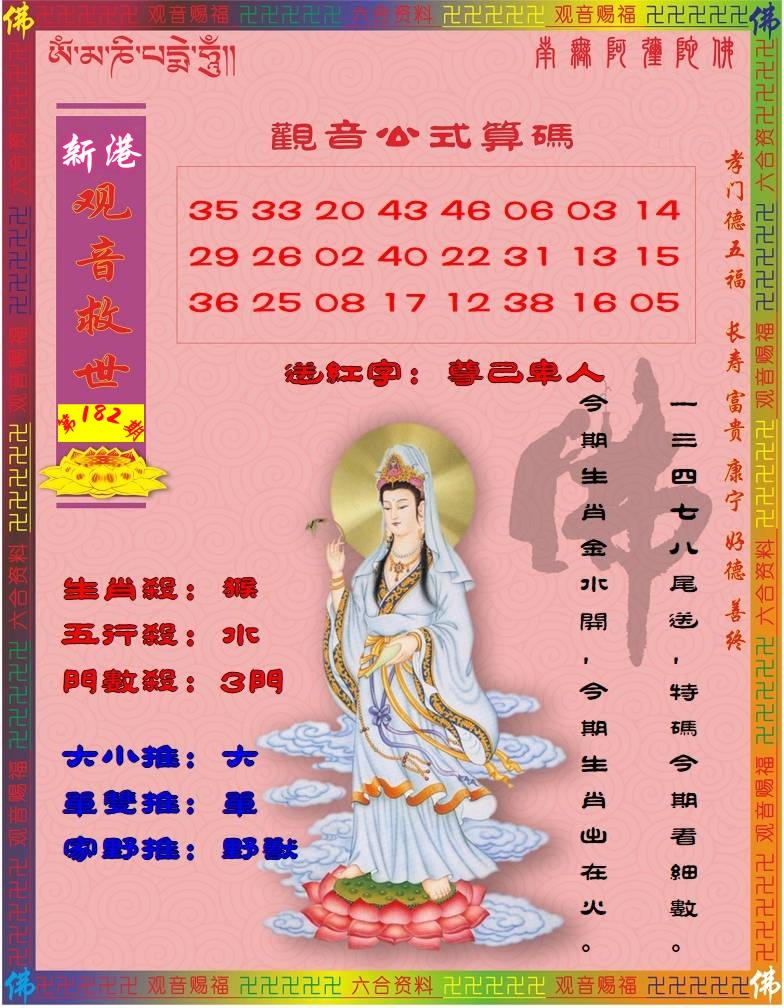 佛 观音赐福 卍卍卍卍卍 六合资料 卍卍卍卍卍 观音赐福 卍卍卍卍卍 佛
南無阿彌陀佛
新港
观音救世
第182期
觀音公式算碼
35 33 20 43 46 06 03 14
29 26 02 40 22 31 13 15
36 25 08 17 12 38 16 05
送紅字：
孝门德五福 长寿 富贵 康宁 好德 善终
一三四七八尾送，特碼今期看細數。
今期生肖金水開，今期生肖出在火。
佛
生肖殺：猴
五行殺：水
門數殺：3門
大小推：大
單雙推：單
家野推：野獸
佛 观音赐福 卍卍卍卍卍 六合资料 卍卍卍卍卍 观音赐福 卍卍卍卍卍 佛